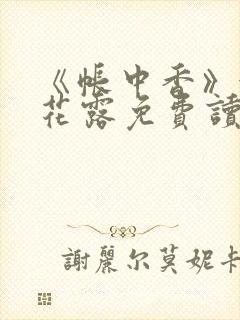 《帳中香》
花露免費讀
謝麗尔莫妮卡